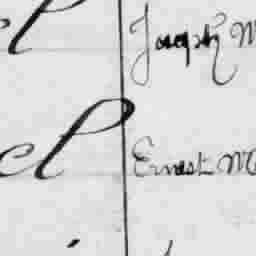 el Joseph M
el Ernest M